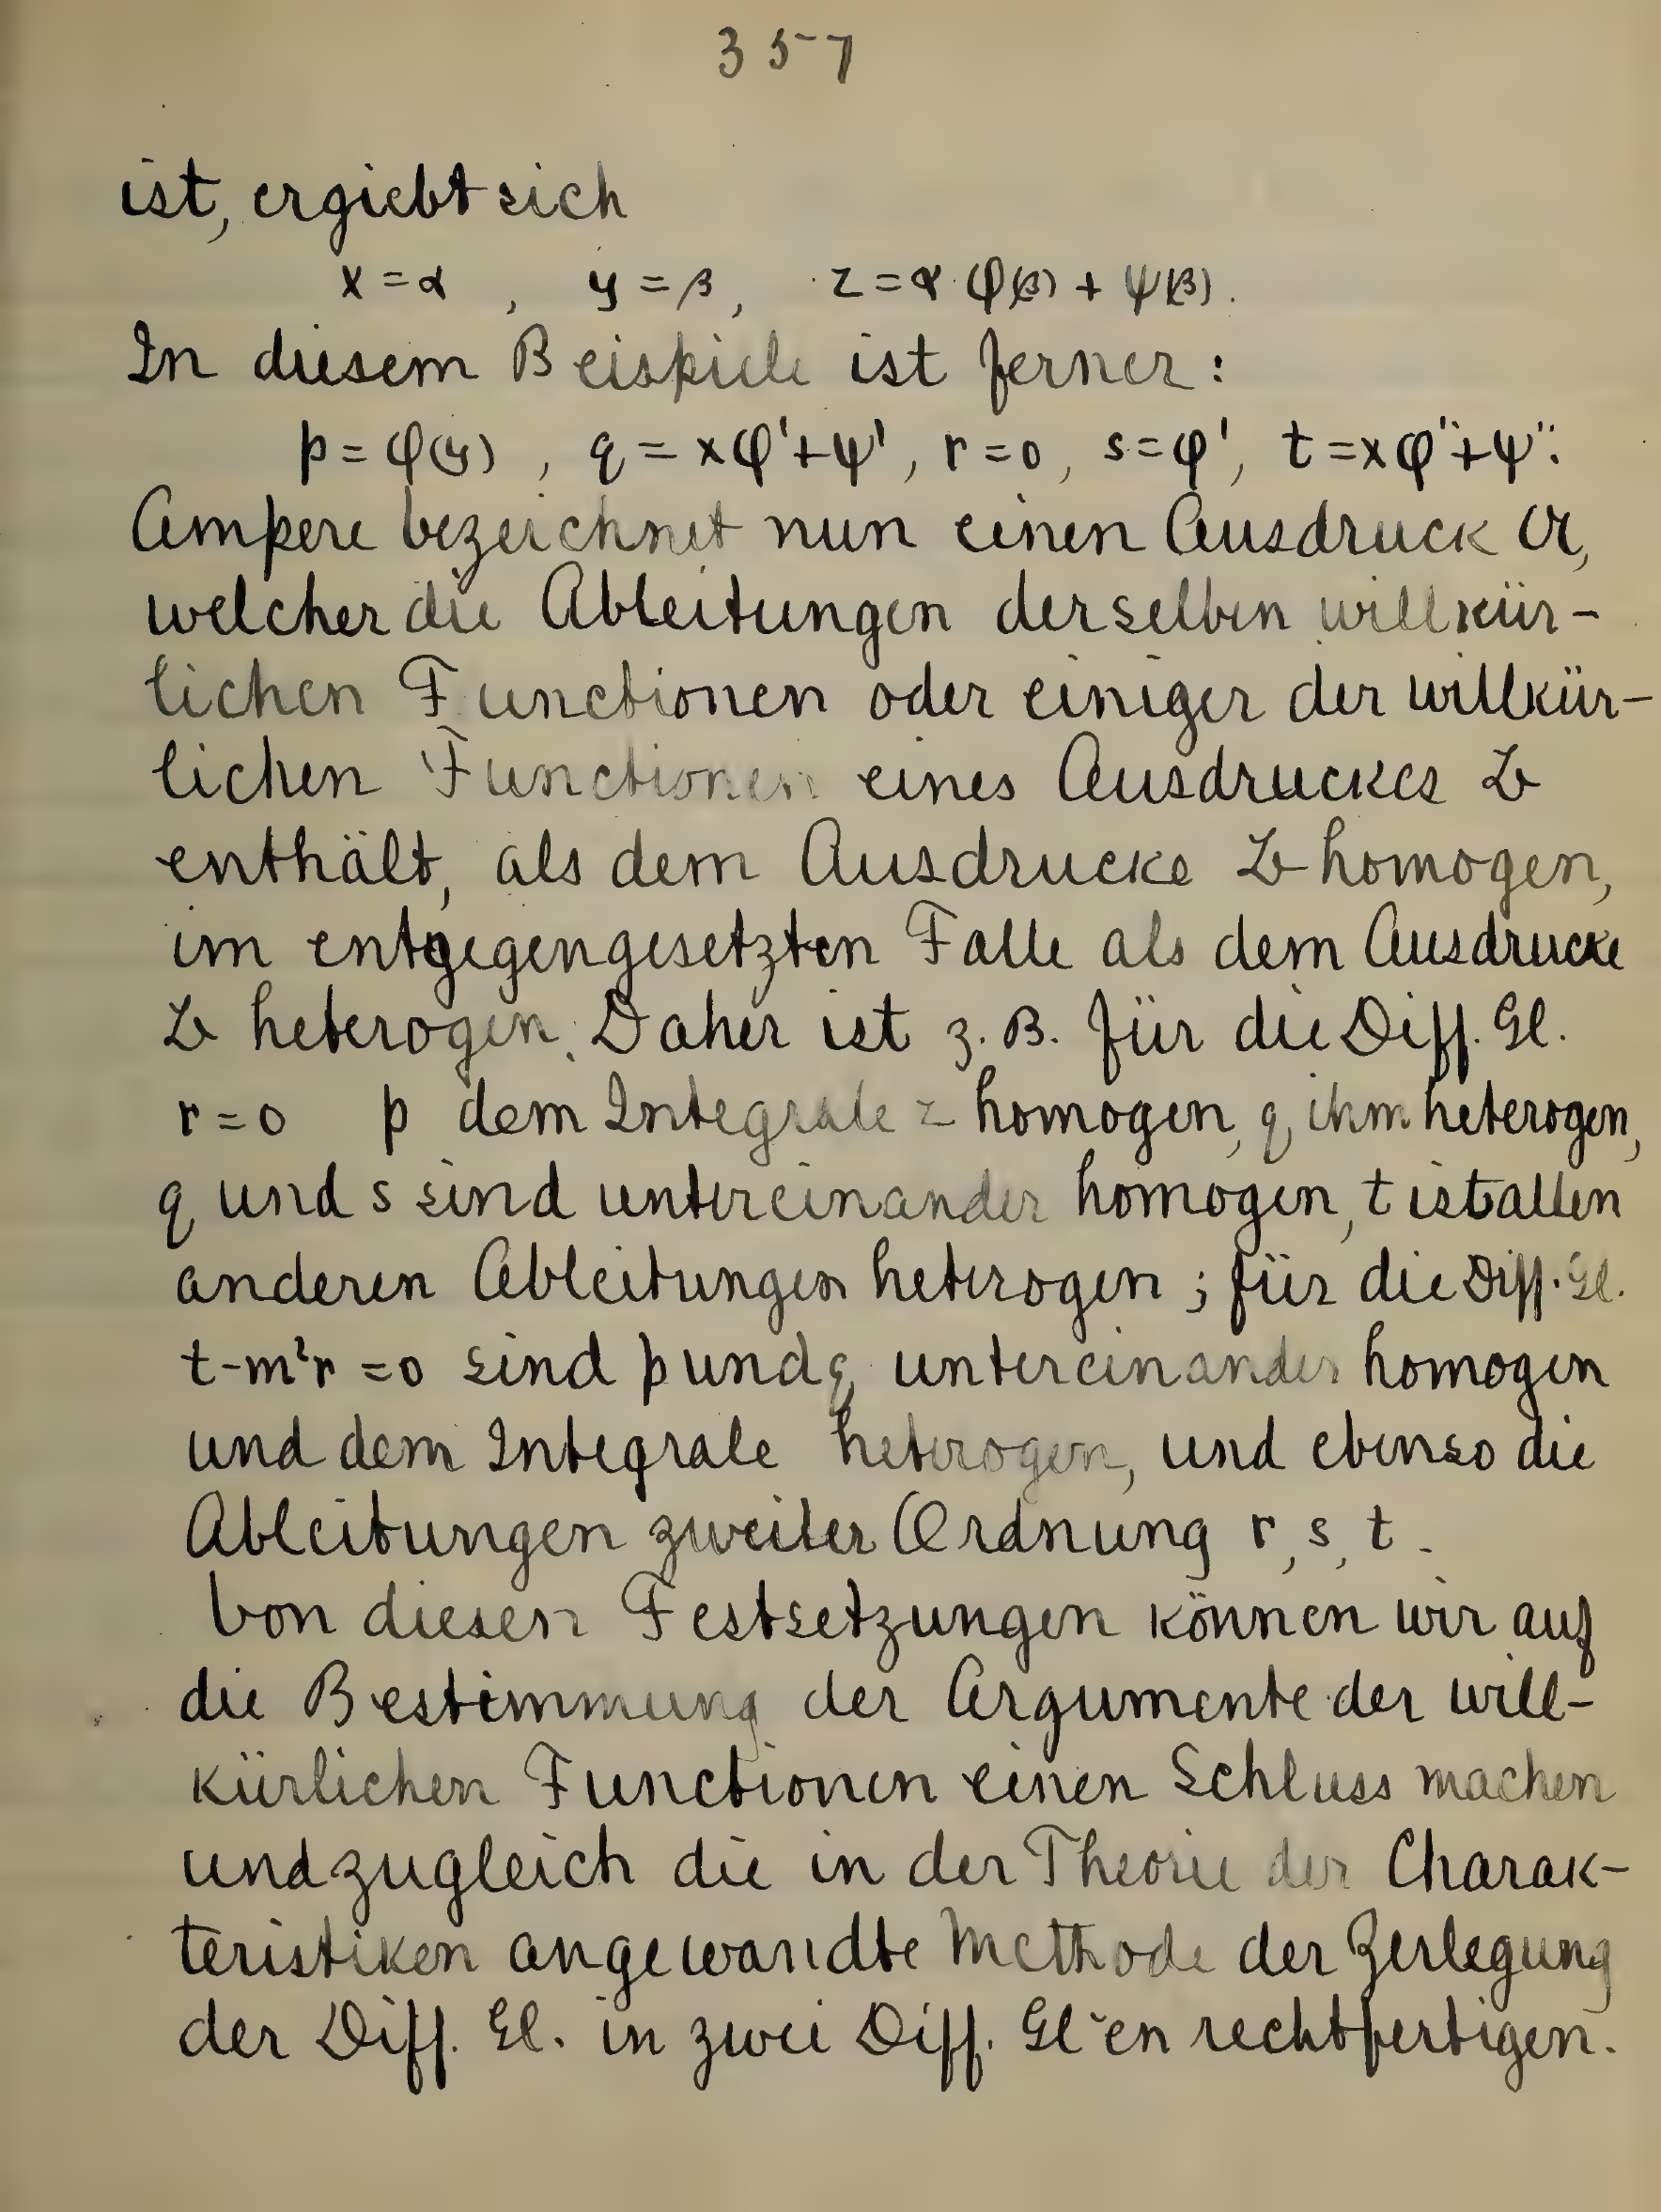 357
ist, ergiebt sich
x = α , y = β, z = α φ(β) + ψ(β).
In diesem Beispiele ist ferner:
p = φ(y) , q = xφ' + ψ', r = 0, s = φ', t = xφ'' + ψ''.
Ampere bezeichnet nun einen Ausdruck 𝔄,
welcher die Ableitungen derselben willkür-
lichen Functionen oder einiger der willkür-
lichen Functionen eines Ausdruckes 𝔅
enthält, als dem Ausdrucke 𝔅 homogen,
im entgegengesetzten Falle als dem Ausdrucke
𝔅 heterogen. Daher ist z. B. für die Diff. Gl.
r = 0 p dem Integrale z homogen, q ihm heterogen,
q und s sind untereinander homogen, t ist allen
anderen Ableitungen heterogen; für die Diff. Gl.
t - m²r = 0 sind p und q untereinander homogen
und dem Integrale heterogen, und ebenso die
Ableitungen zweiter Ordnung r, s, t.
Von diesen Festsetzungen können wir auf
die Bestimmung der Argumente der will-
kürlichen Functionen einen Schluss machen
und zugleich die in der Theorie der Charak-
teristiken angewandte Methode der Zerlegung
der Diff. Gl. in zwei Diff. Gl-en rechtfertigen.